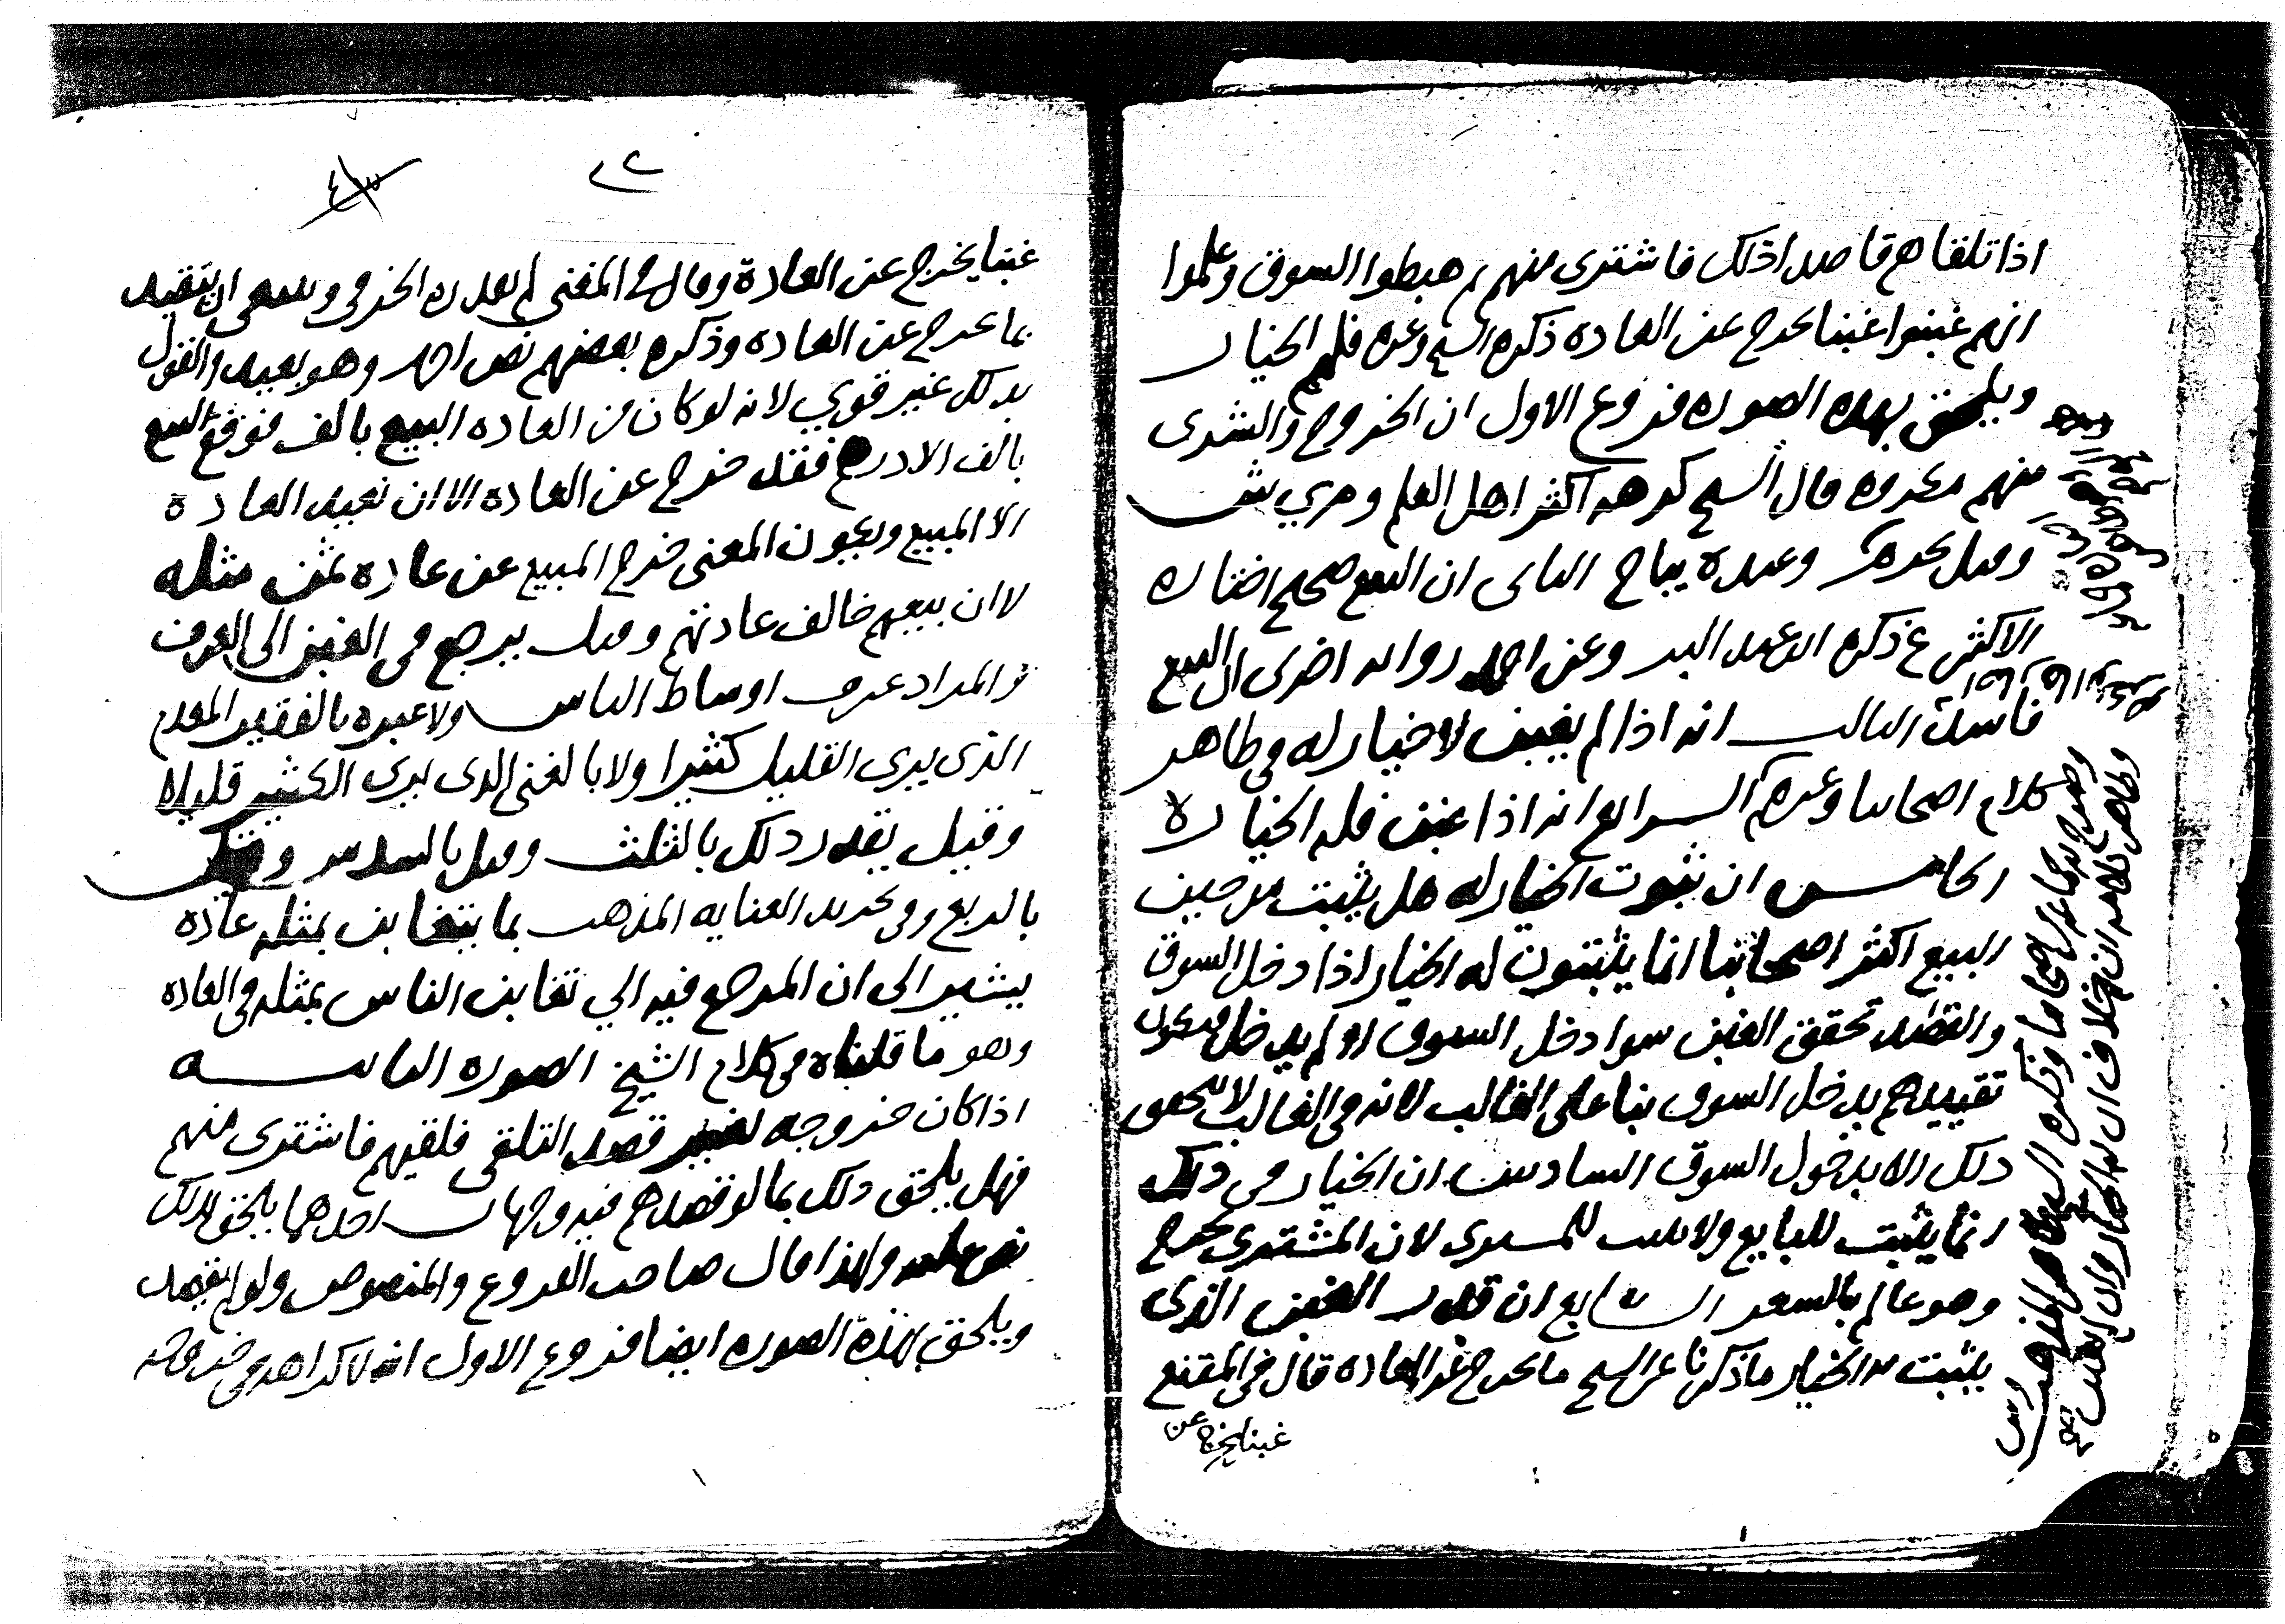 اذا تلقاهم قاصدا ذلك فاشترى منهم ثم هبطوا السوق وعلموا
انهم غبنوا غبنا يخرج عن العاده ذكره الشيخ وغيره فلهم الخيار
ويلحق بهذه الصوره فروع الاول ان الخروج والشرى
منهم مكروه قال الشيخ كرهه اكثر اهل العلم
وقيل يحرم وعنده يباح الثاني ان البيع صحيح اختاره
الاكثر ذكره ابن عبد البر وعن احمد روايه اخرى ان البيع
فاسد الثالث انه اذا لم يغبن لا خيار له في ظاهر
كلام اصحابنا وغيرهم الرابع انه اذا غبن فله الخيار
الخامس ان ثبوت الخيار له هل يثبت من حين
البيع اكثر اصحابنا انما يثبتون له الخيار اذا دخل السوق
والقصد تحقق الغبن سوا دخل السوق او لم يدخل ويكون
تقييدهم بدخل السوق بنا على الغالب لانه في الغالب لا يتحقق
ذلك الا بدخول السوق السادس ان الخيار في ذلك
انما يثبت للبايع ولا يثبت للمشتري لان المشتري يخرج
وهو عالم بالسعر السابع ان قدر الغبن الذي
يثبت به الخيار ما ذكرنا عن الشيخ ما يخرج عن العاده قال في المقنع
غبنا يخرج عن
غبنا يخرج عن العادة وقال في المغني لم يحده الخرقي وينبغي ان يتقيد
بما يخرج عن العاده وذكره بعضهم نص احمد وهو بعيد والقول
بذلك غير قوي لانه لو كان من العاده البيع بالف فوقع البيع
بالف الا درهم فقد خرج عن العاده الا ان نعيد العادة
الا المبيع ويكون المعنى خرج المبيع عن عاده ثمن مثله
لا ان بيعهم خالف عادتهم وقيل يرجع في الغبن الى العرف
والمراد عرف اوساط الناس ولا عبره بالفقير المعدم
الذي يرى القليل كثيرا ولا بالغني الذي يرى الكثير قليلا
وقيل يقدر ذلك بالثلث وقيل بالسدس وقيل
بالربع وفي تحرير العنايه المذهب بما يتغابن بمثله عادة
يشير الى ان المرجع فيه الي تغابن الناس بمثله في العاده
وهو ما قلناه في كلام الشيخ الصوره الثانيه
اذا كان خروجه لغير قصد التلقي فلقيهم فاشترى منهم
فهل يلحق ذلك بما لو قصدهم فيه وجهان احدهما يلحق بذلك
نص عليه ولهذا قال صاحب الفروع والمنصوص ولو لم يقصد
ويلحق بهذه الصوره ايضا فروع الاول انه لا كراهه في خروجه